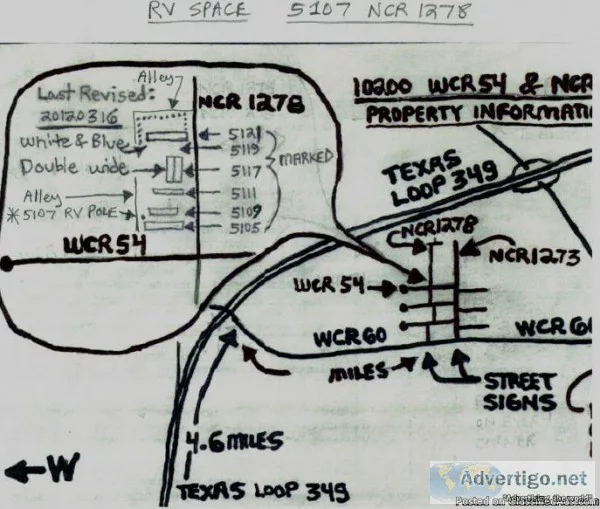 RV SPACE 5107 NCR 1278
Alley
Last Revised:
20120316
NCR 1278
White & Blue
Double wide
Alley
*5107 RV POLE
5121
5119
5117
5111
5109
5105
MARKED
WCR 54
10200 WCR 54 & NCR
PROPERTY INFORMATI
TEXAS
LOOP 349
NCR1278
NCR1273
WCR 54
WCR60
WCR 6
MILES
STREET
SIGNS
4.6 MILES
W
TEXAS LOOP 349
Advertigo.net